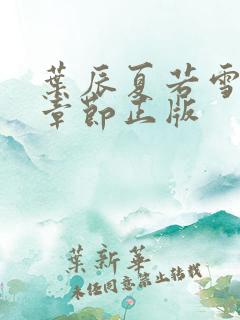 葉辰夏若雪
章節正版
葉新華
未经同意禁止转载